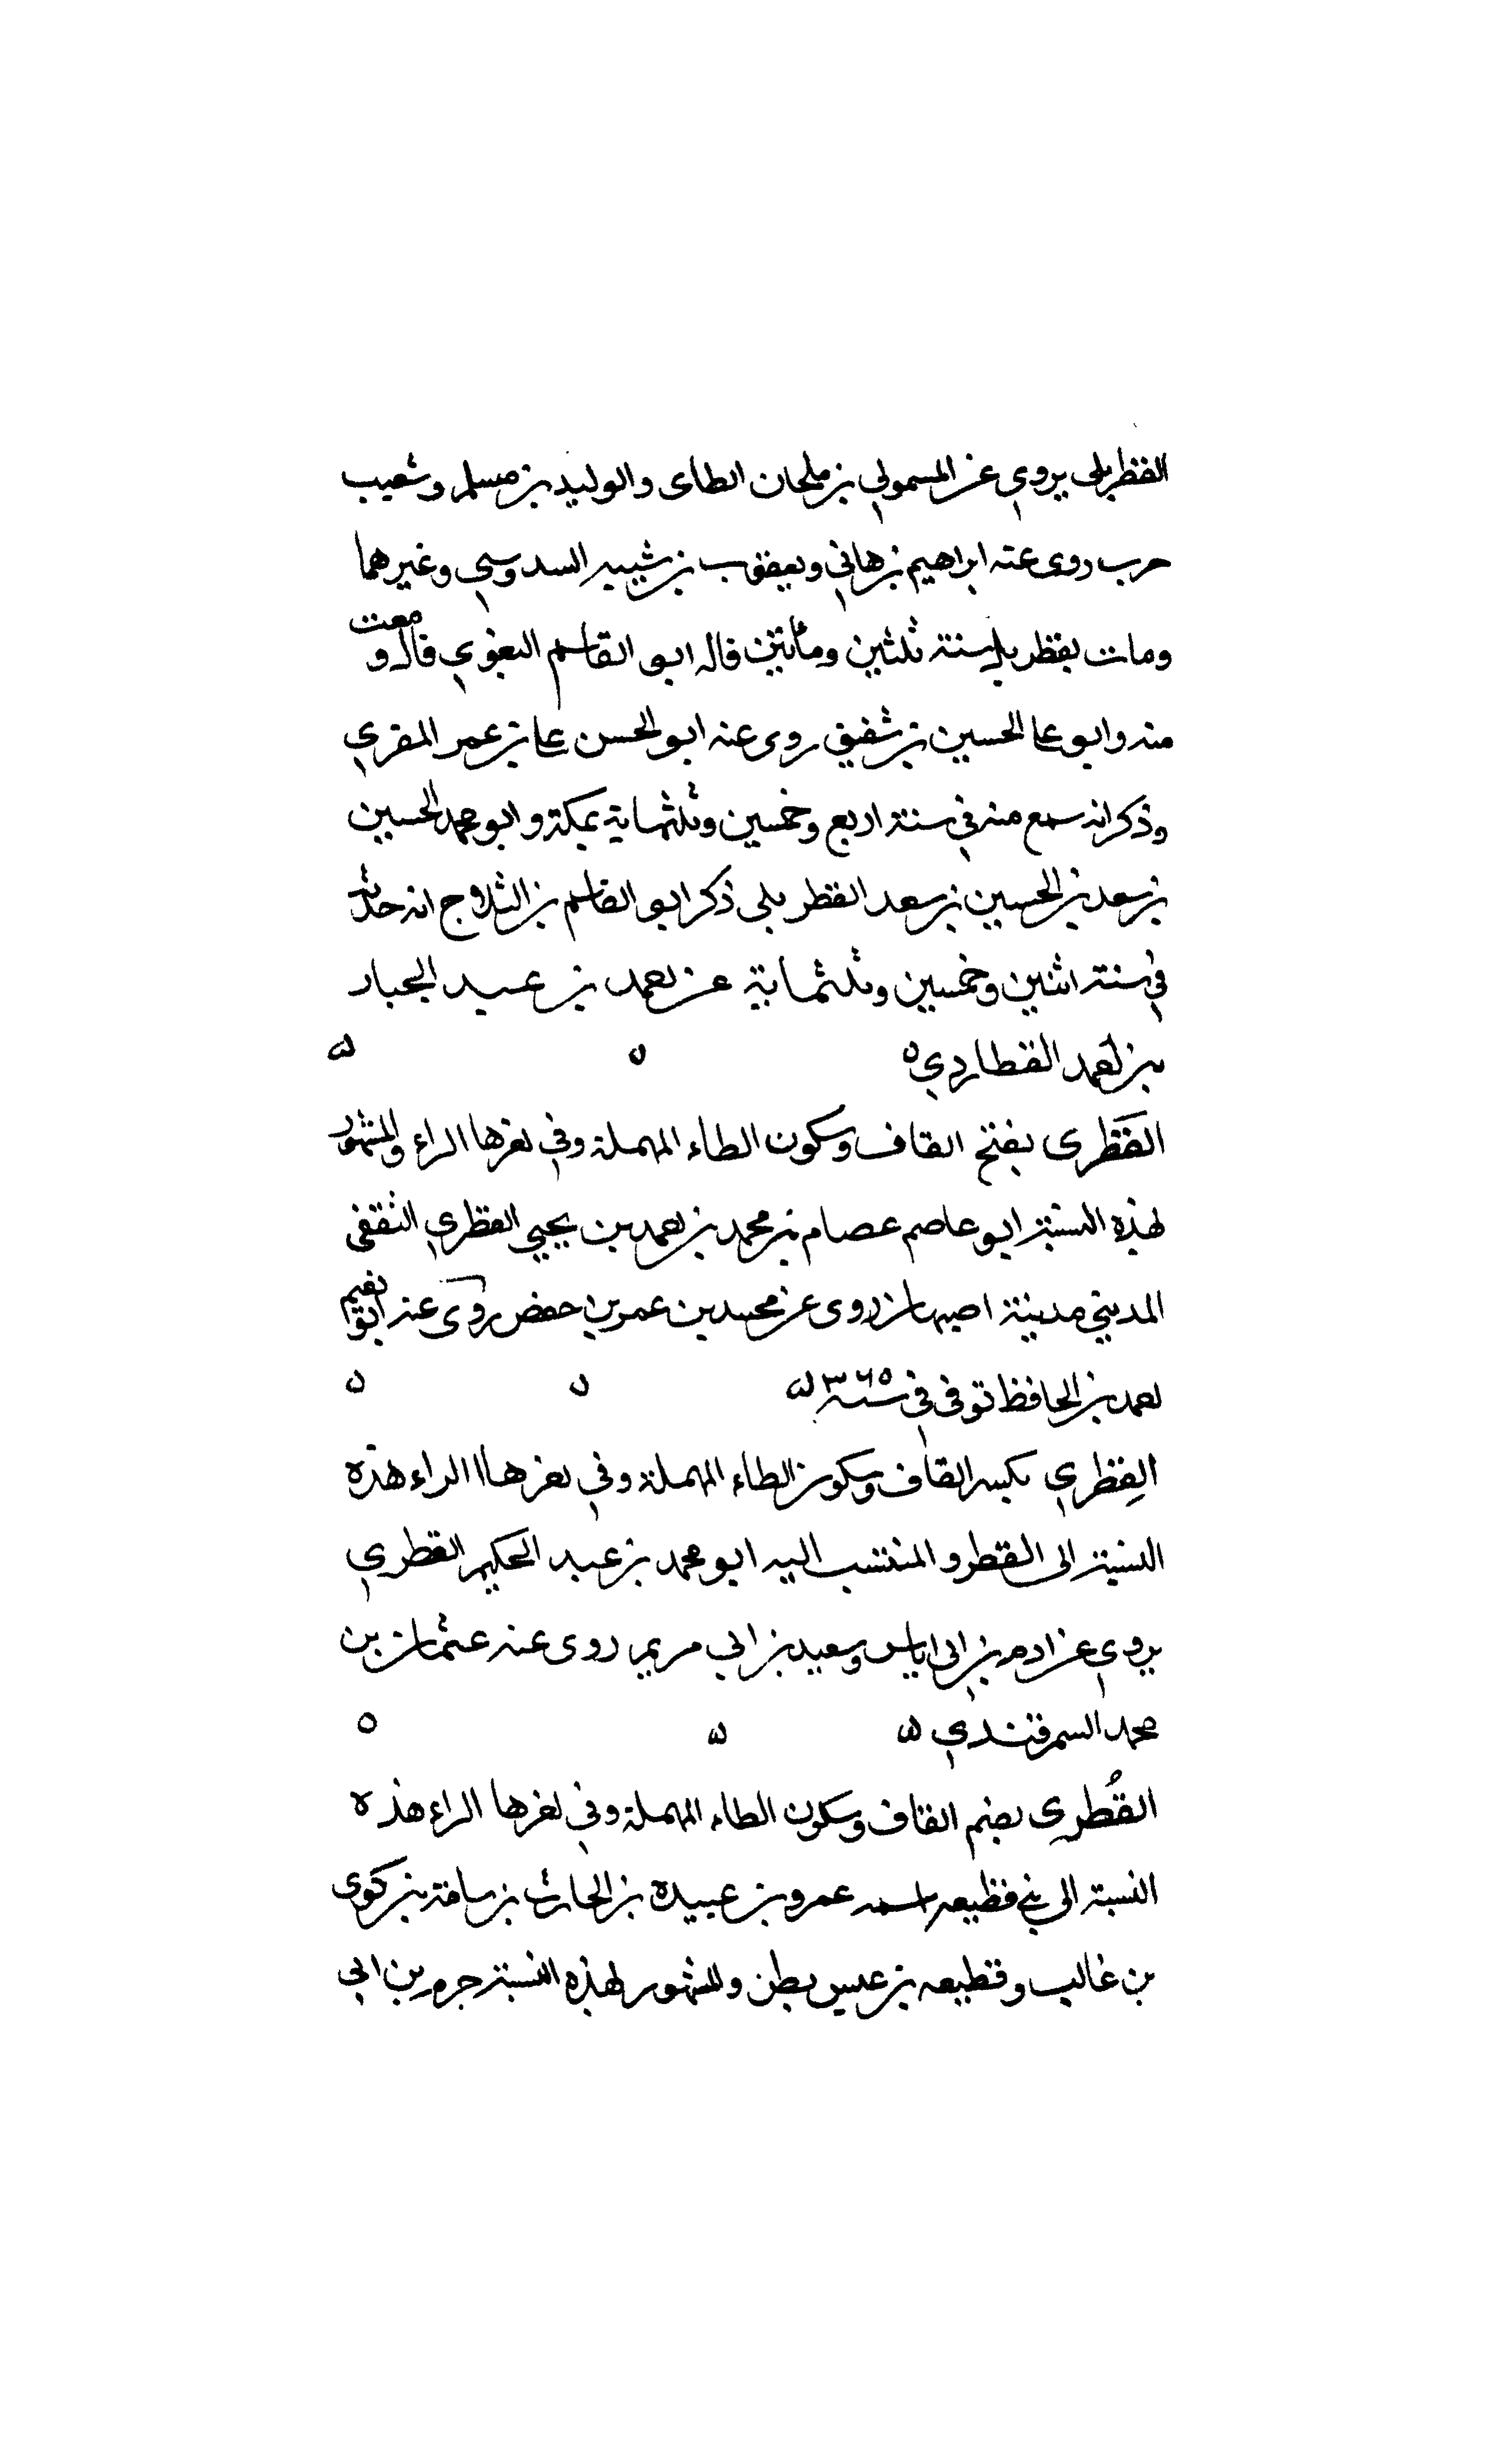 القطربلي يروي عن المسمولي بن ملحان الطاى والوليد بن مسلم وشعيب
حرب روى عنه ابراهيم بن هاني ويعقوب بن شيبه السدوسي وغيرهما
ومات بقطربل سنة ثلثين ومأتين قاله ابو القاسم البغوي قال وسمعت
منه وابو علي الحسين بن شفيق روى عنه ابو الحسن علي بن عمر المقري
وذكر انه سمع منه في سنة اربع وخمسين وثلثماية بمكة وابو محمد الحسين
بن سعد بن الحسين بن سعد القطربلي ذكر ابو القاسم بن الثلاج انه حدث
في سنة اثنين وخمسين وثلثماية عن احمد بن عبد الجبار
بن احمد القطاردي ٥
القَطْرى بفتح القاف وسكون الطاء المهملة وفي اخرها الراء والمشهور
لهذه النسبة ابو عاصم عصام بن محمد بن احمد بن يحيي القطري الثقفى
المديني مدينة اصبهان روى عن محمد بن عمر بن حفص روى عنه ابو نعيم
احمد بن الحافظ توفى في سنة ٣٦٥
القِطري بكسر القاف وسكون الطاء المهملة وفي اخرها الراء هذه
النسبة الى القطر و المنتسب اليه ابو محمد بن عبد الحكيم القطري
يروي عن ادم بن ابى اياس وسعيد بن ابي مريم روى عنه عثمان بن
محمد السمرقندي
القُطرى بضم القاف وسكون الطاء المهملة وفي اخرها الراء هذه
النسبة الى بني قطيعه واسمه عمرو بن عبيدة بن الحارث بن سامة بن لوى
بن غالب وقطيعه بن عبس بطن والمشهور لهذه النسبة حزم بن ابي